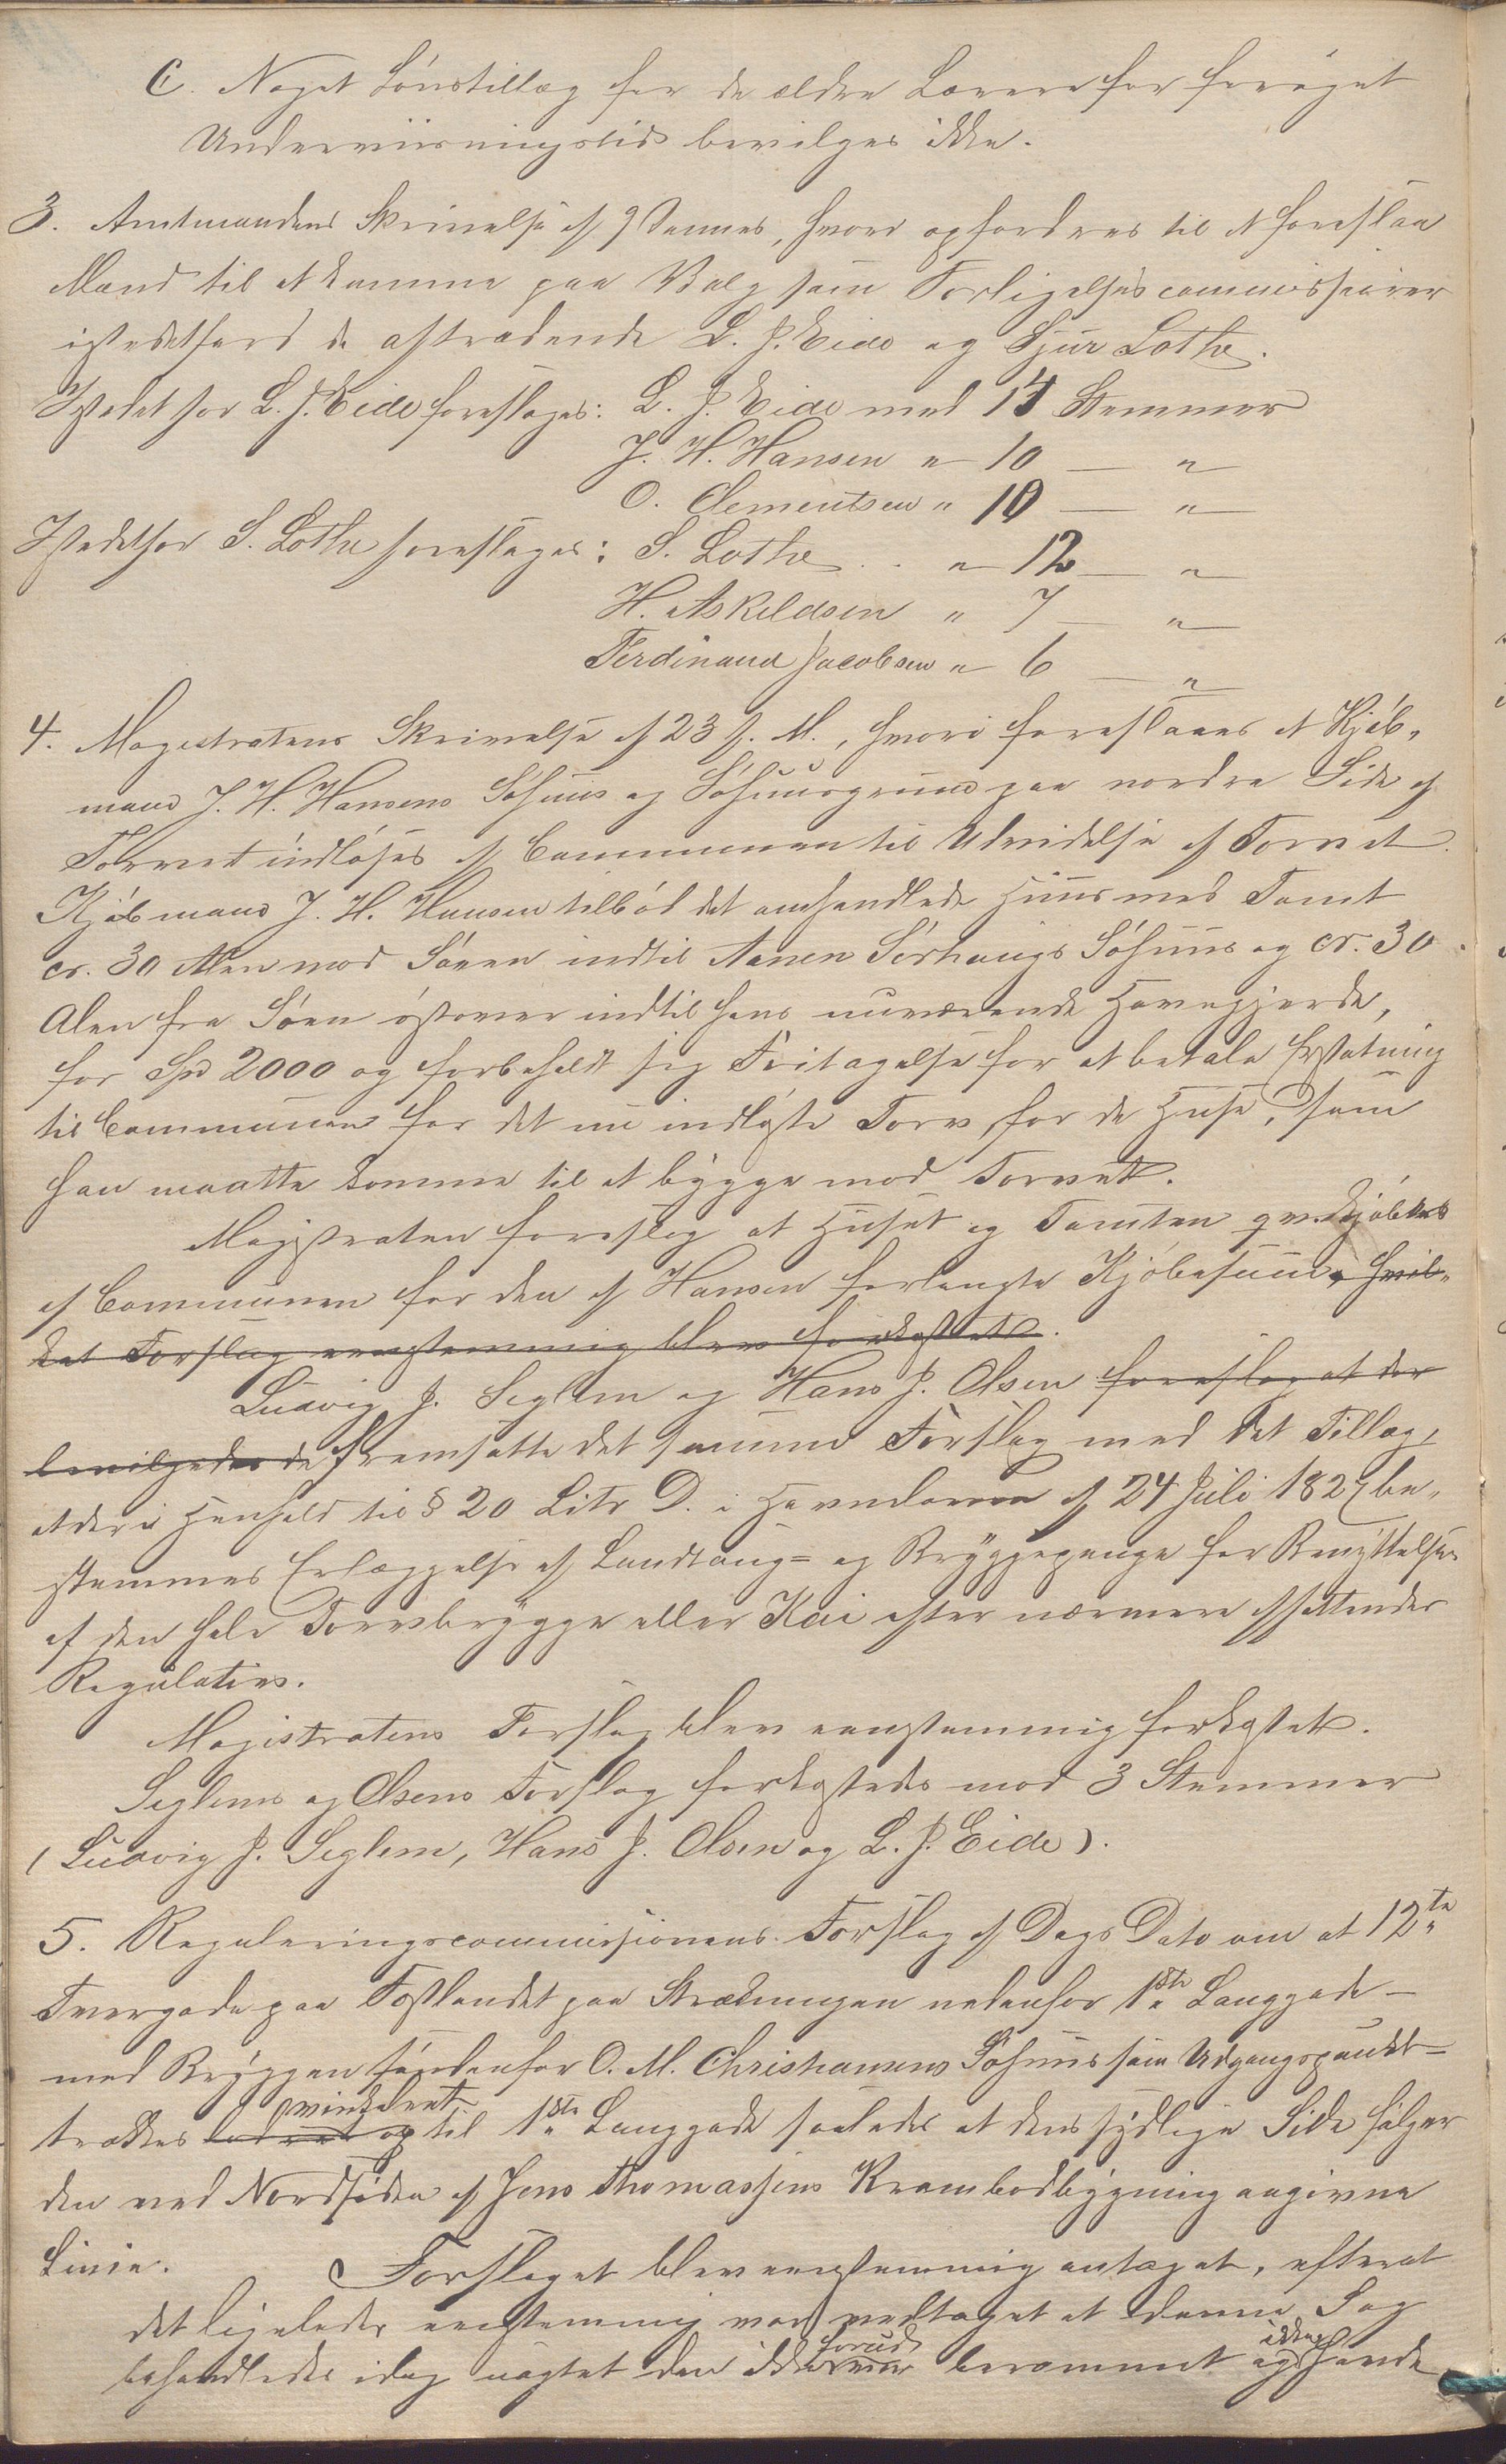 C. Noget Lønstillæg for de ældre Lærere for forøget
Underviisningstid bevilges ikke.
3. Amtmandens Skrivelse af 9 dennes, hvori opfordres til at foreslaa
Mænd til at komme paa Valg som Forligelsescommissairer
istedetfor de aftrædende L. J. Eide og Sjur Lothe.
Istedetfor L. J. Eide foresloges: L. J. Eide med 14 Stemmer
J. H. Hansen " 10 — "
O. Clementsen " 10 — "
Istedetfor S. Lothe foresloges: S. Lothe .. " 12 — "
H. Askeldsen " 7 — "
Ferdinand Jacobsen " 6 — "
4. Magistratens Skrivelse af 23 f. M., hvori foreslaaes at Kjøb-
mand J. H. Hansens Søhuus og Søhuusgrund paa nordre Side af
Torvet indløses af Communen til Udvidelse af Torvet.
Kjøbmand J. H. Hansen tilbød det omhandlede Huus med Tomt
cr. 30 Alen mod Søen indtil Aanen Sørhaugs Søhuus og cr. 30
Alen fra Søen østover indtil hans nuværende Havegjerde,
for Spd 2000 og forbeholdt sig Fritagelse for at betale Erstatning
til Communen for det nu indløste Torv, for de Huse, som
han maatte komme til at bygge mod Torvet.
Magistraten foreslog at Huset og Tomten indkjøbtes
af Communen for den af Hansen forlangte Kjøbesum, hvil-
ket Forslag eenstemmig blev forkastet.
Ludvig J. Seglem og Hans J. Olsen foreslog at der
bevilgedes de fremsatte det samme Forslag med det Tillæg,
at der i Henhold til § 20 Litr D. i Havneloven af 24 Juli 1827 be-
stemmes Erlæggelse af Landtoug- og Bryggepenge for Benyttelsen
af den hele Torvbrygge eller Kai efter nærmere affattende
Regulativ.
Magistratens Forslag blev eenstemmig forkastet.
Seglems og Olsens Forslag forkastedes mod 3 Stemmer
(Ludvig J. Seglem, Hans J. Olsen og L. J. Eide).
5. Reguleringscommissionens Forslag af Dags Dato om at 12te
Tvergade paa Fastlandet paa Strækningen nedenfor 1ste Langgade –
med Bryggen søndenfor O. M. Christiansens Søhuus som Udgangspunkt –
trækkes lodret vinkelret op til 1ste Langgade saaledes at dens sydlige Side følger
den ved Nordsiden af Jens Thomassens Krambodbygning angivne
Linie. Forslaget blev eenstemmig antaget, efterat
det ligeledes eenstemmig var vedtaget at denne Sag
behandledes idag uagtet den ikke var forud berammet og ikke havde